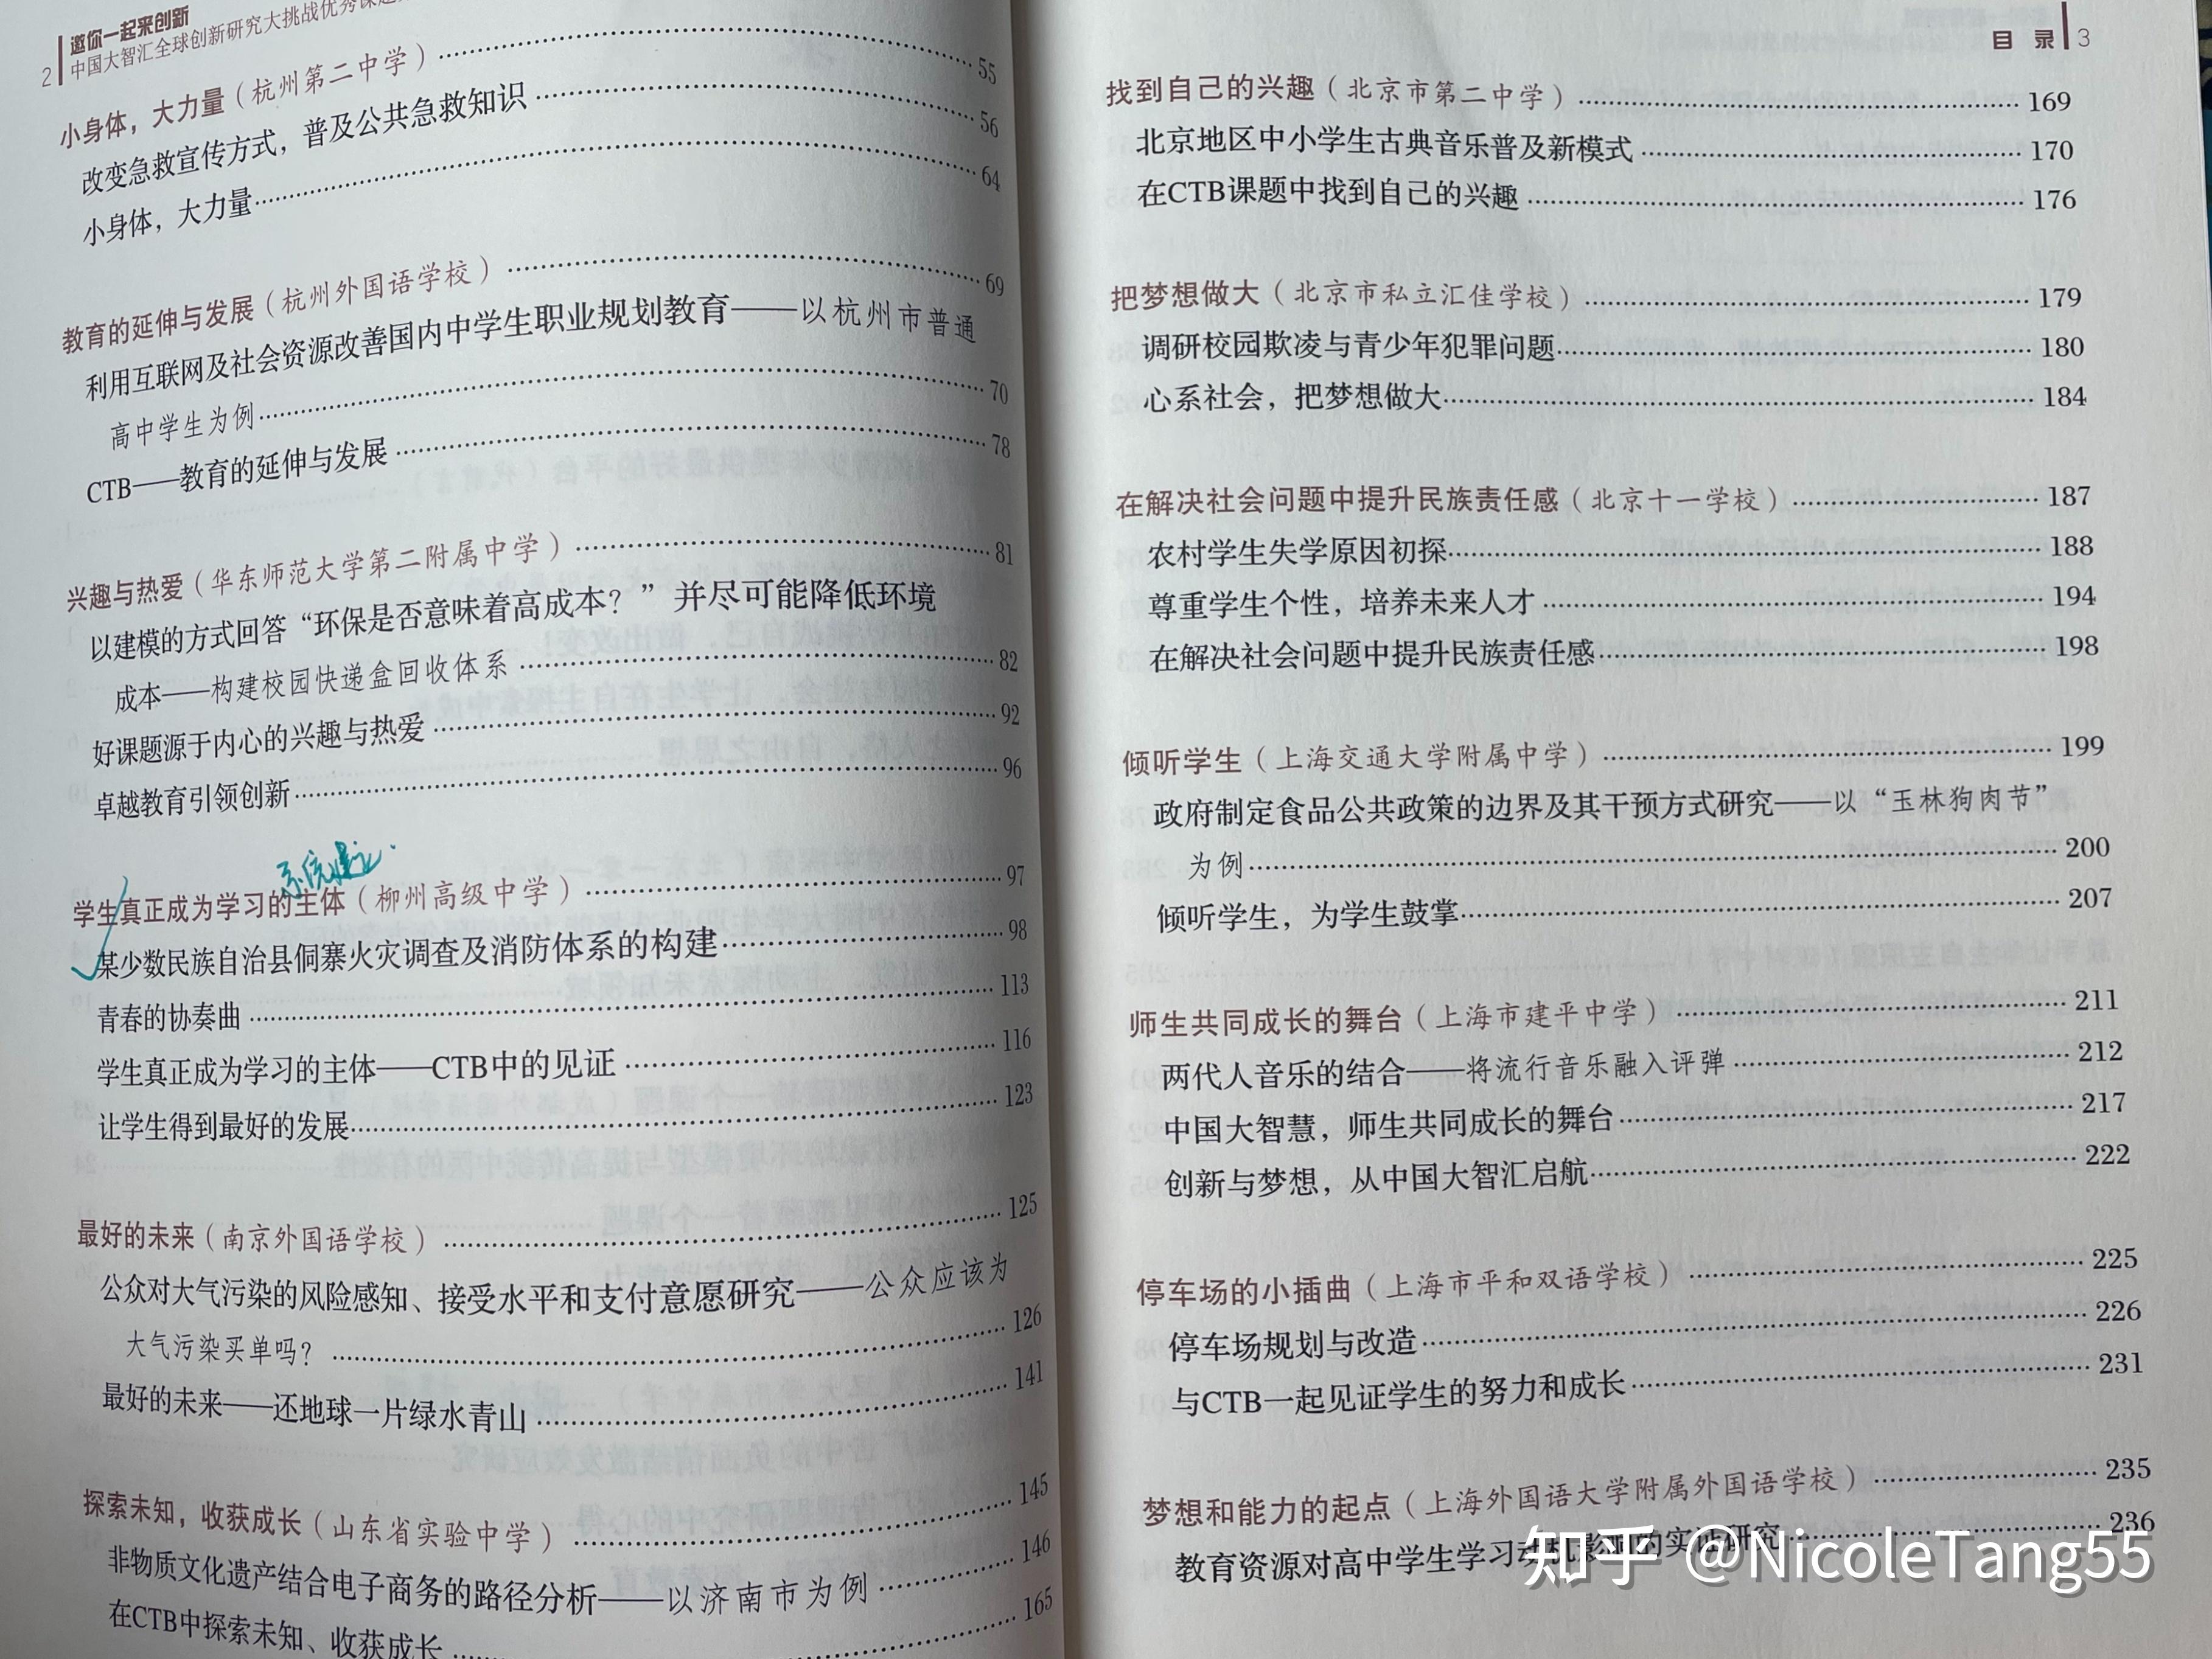 2
邀你一起来创新
中国大智汇全球创新研究大挑战优秀课题
小身体，大力量（杭州第二中学）……55
改变急救宣传方式，普及公共急救知识……56
小身体，大力量……64
教育的延伸与发展（杭州外国语学校）……69
利用互联网及社会资源改善国内中学生职业规划教育——以杭州市普通
高中学生为例……70
CTB——教育的延伸与发展……78
兴趣与热爱（华东师范大学第二附属中学）……81
以建模的方式回答“环保是否意味着高成本？”并尽可能降低环境
成本——构建校园快递盒回收体系……82
好课题源于内心的兴趣与热爱……92
卓越教育引领创新……96
系统建立
学生真正成为学习的主体（柳州高级中学）……97
某少数民族自治县侗寨火灾调查及消防体系的构建……98
青春的协奏曲……113
学生真正成为学习的主体——CTB中的见证……116
让学生得到最好的发展……123
最好的未来（南京外国语学校）……125
公众对大气污染的风险感知、接受水平和支付意愿研究——公众应该为
大气污染买单吗？……126
最好的未来——还地球一片绿水青山……141
探索未知，收获成长（山东省实验中学）……145
非物质文化遗产结合电子商务的路径分析——以济南市为例……146
在CTB中探索未知、收获成长……165
目 录 3
找到自己的兴趣（北京市第二中学）……169
北京地区中小学生古典音乐普及新模式……170
在CTB课题中找到自己的兴趣……176
把梦想做大（北京市私立汇佳学校）……179
调研校园欺凌与青少年犯罪问题……180
心系社会，把梦想做大……184
在解决社会问题中提升民族责任感（北京十一学校）……187
农村学生失学原因初探……188
尊重学生个性，培养未来人才……194
在解决社会问题中提升民族责任感……198
倾听学生（上海交通大学附属中学）……199
政府制定食品公共政策的边界及其干预方式研究——以“玉林狗肉节”
为例……200
倾听学生，为学生鼓掌……207
师生共同成长的舞台（上海市建平中学）……211
两代人音乐的结合——将流行音乐融入评弹……212
中国大智慧，师生共同成长的舞台……217
创新与梦想，从中国大智汇启航……222
停车场的小插曲（上海市平和双语学校）……225
停车场规划与改造……226
与CTB一起见证学生的努力和成长……231
梦想和能力的起点（上海外国语大学附属外国语学校）……235
教育资源对高中学生学习动机影响的实证研究……236
知乎 @NicoleTang55